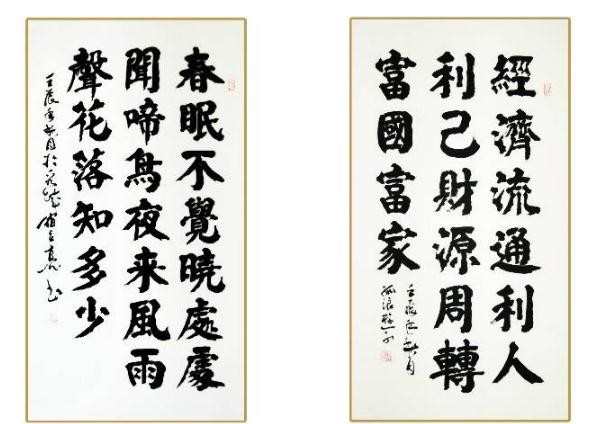 春眠不覺曉處處
聞啼鳥夜来風雨
聲花落知多少
壬辰年秋月於
經濟流通利人
利己財源周轉
富國富家
壬辰